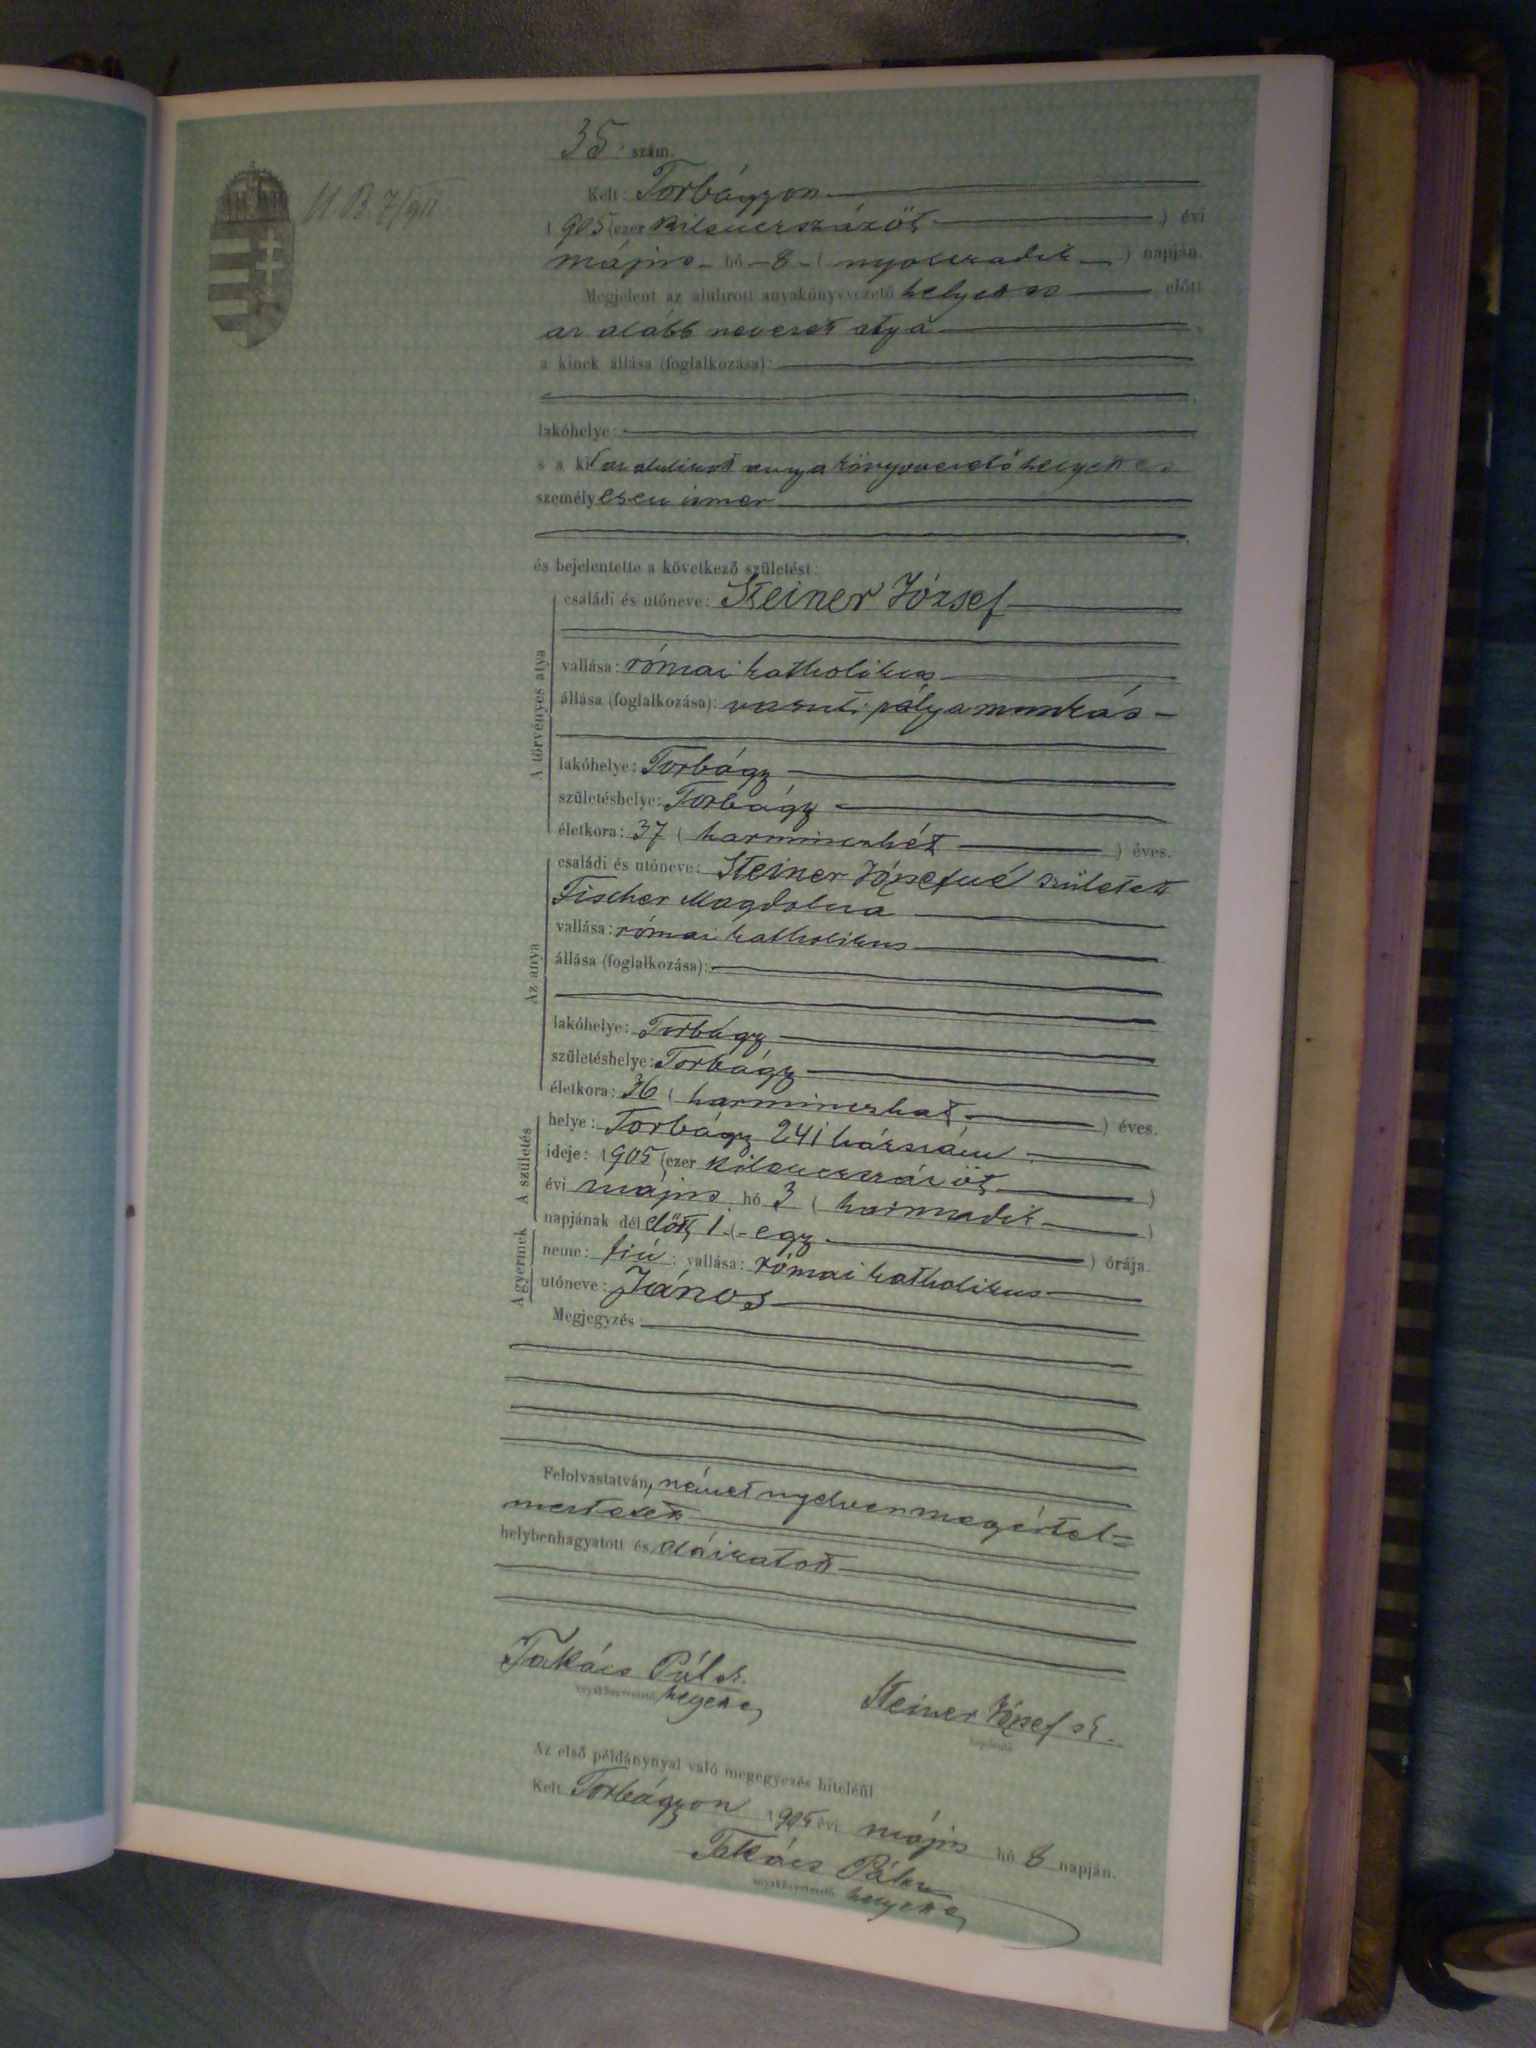 35. szám.
Kelt: Torbágyon
1905 (ezer kilenczszázöt ) évi
május hó 8 ( nyolczadik ) napján.
Megjelent az alulirott anyakönyvvezető helyettes előtt
az alább nevezett atya
a kinek állása (foglalkozása):
lakóhelye:
s a kit az alulirott anyakönyvvezető helyettes
személyesen ismer
és bejelentette a következő születést:
A törvényes atya
családi és utóneve: Steiner József
vallása: római katholikus
állása (foglalkozása): vasuti pályamunkás
lakóhelye: Torbágy
születéshelye: Torbágy
életkora: 37 ( harminczhét ) éves.
Az anya
családi és utóneve: Steiner Józsefné született
Fischer Magdolna
vallása: római katholikus
állása (foglalkozása):
lakóhelye: Torbágy
születéshelye: Torbágy
életkora: 36 ( harminczhat ) éves.
A születés
helye: Torbágy 241 házszám
ideje: 1905 (ezer kilenczszázöt )
évi május hó 3 ( harmadik )
napjának délelőtt 1 ( egy ) órája.
A gyermek
neme: fiú ; vallása: római katholikus
utóneve: János
Megjegyzés:
Felolvastatván, német nyelven megértel=
meztetett
helybenhagyatott és aláiratott
Takács Pál sk.
anyakönyvvezető helyettes
Steiner József sk.
bejelentő
Az első példánynyal való megegyezés hiteléül
Kelt Torbágyon 1905 évi május hó 8 napján.
Takács Pál
anyakönyvvezető helyettes